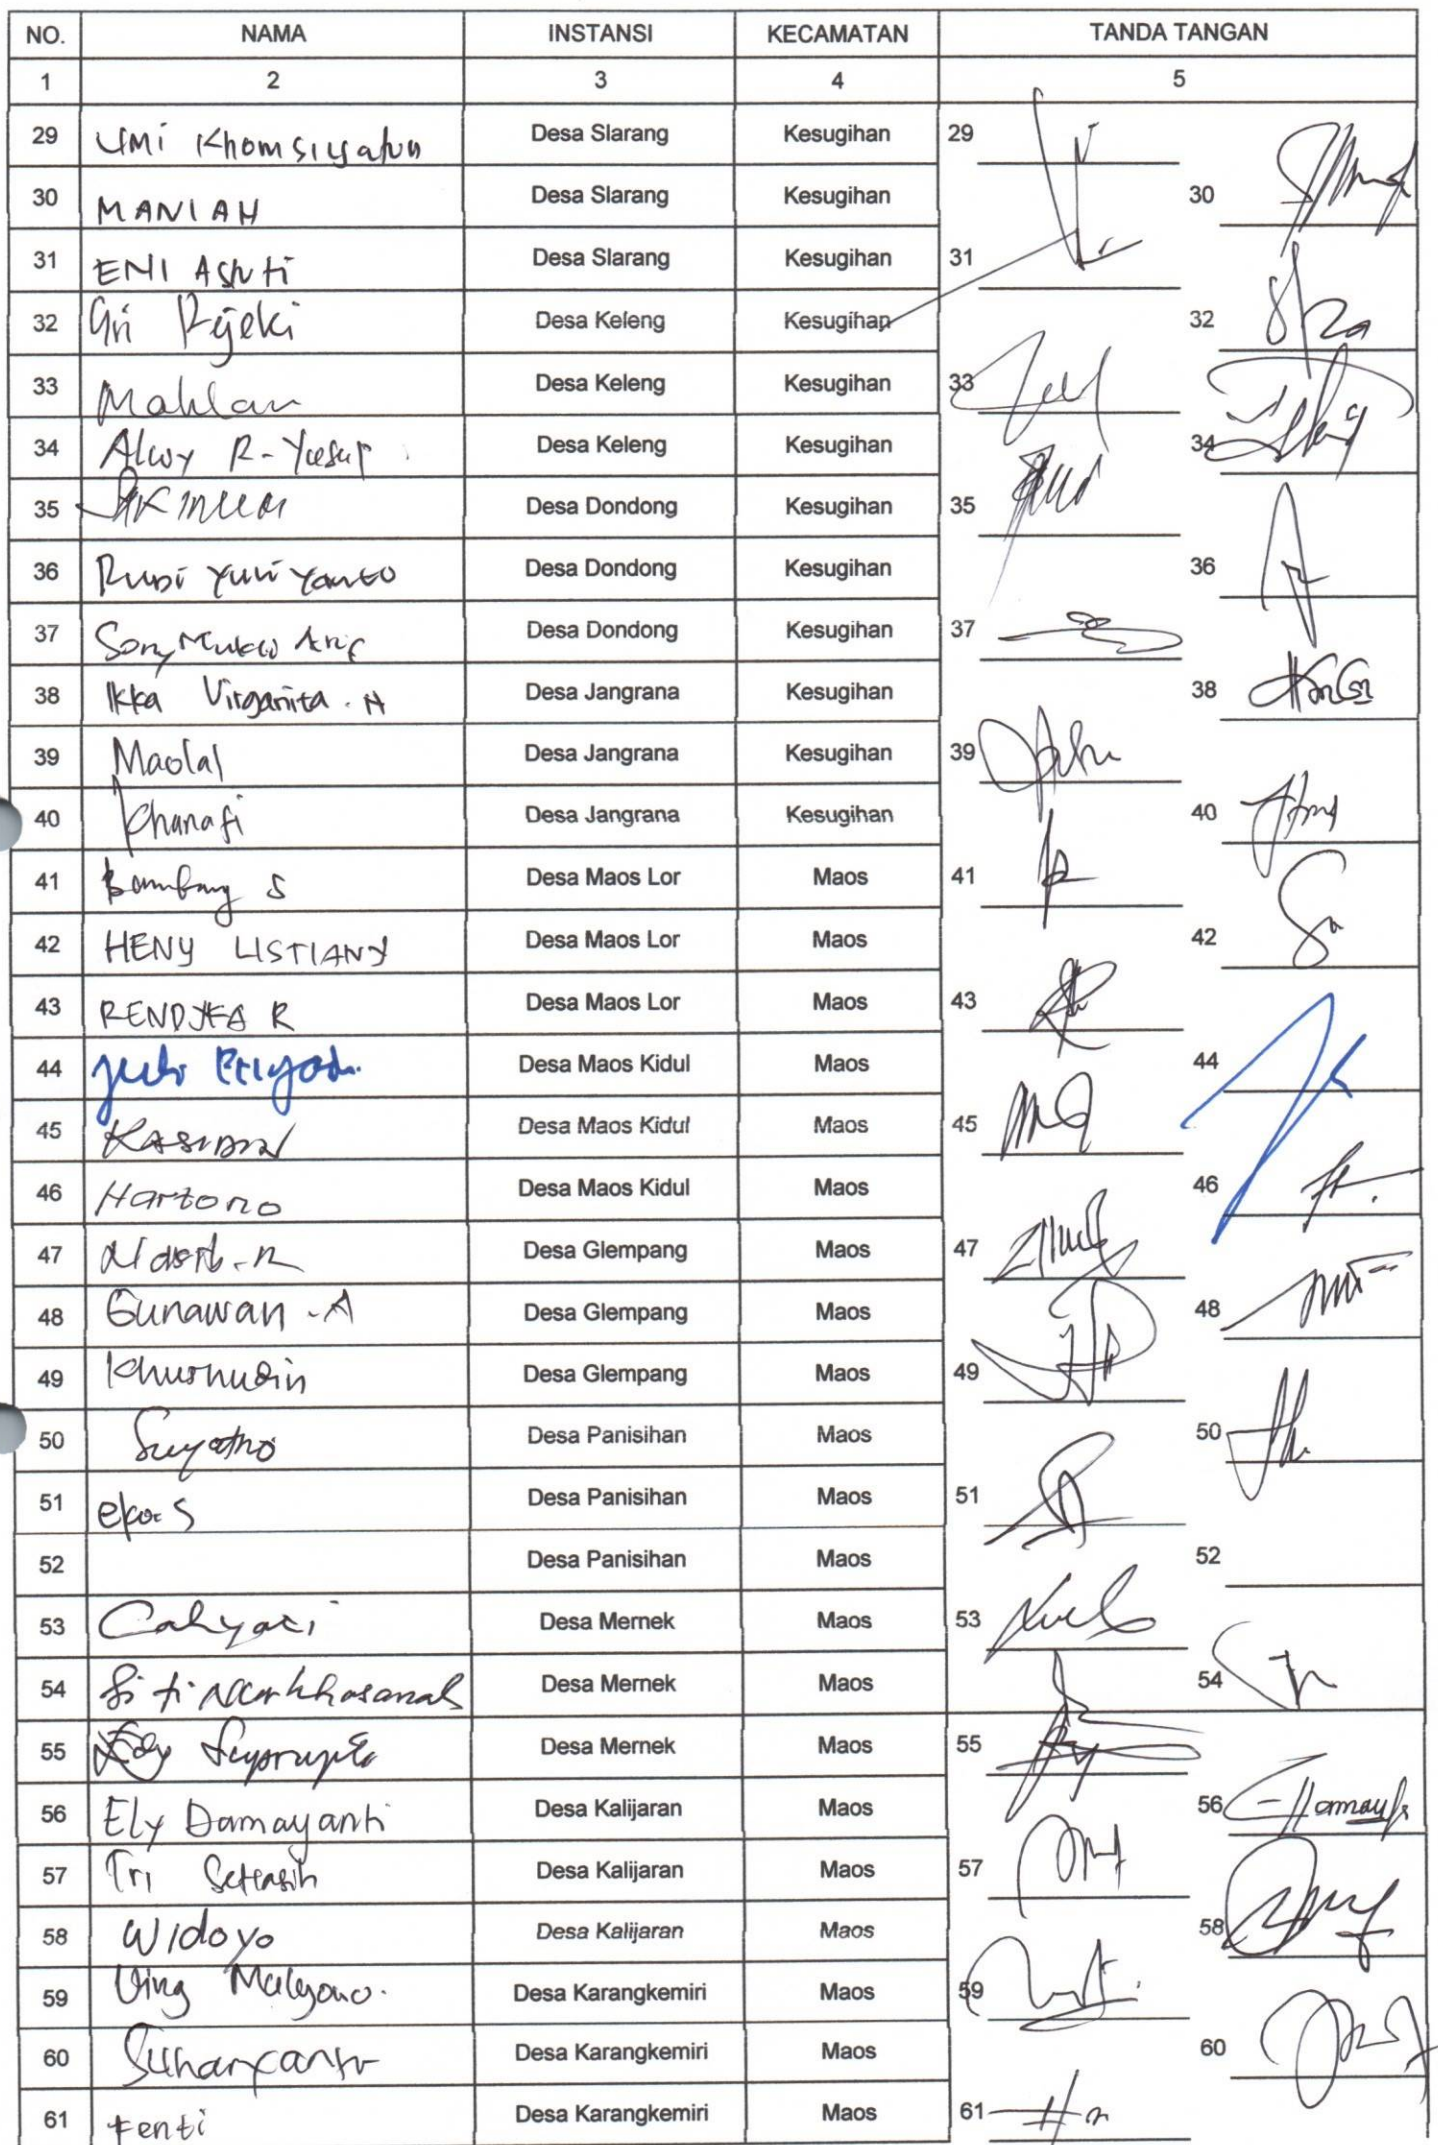 NO. NAMA INSTANSI KECAMATAN TANDA TANGAN
1 2 3 4 5
29 UMi Khomsiyatun Desa Slarang Kesugihan 29
30 MANIAH Desa Slarang Kesugihan 30
31 ENI AStuti Desa Slarang Kesugihan 31
32 Sri Rejeki Desa Keleng Kesugihan 32
33 Mahlan Desa Keleng Kesugihan 33
34 Alwy R-Yusup Desa Keleng Kesugihan 34
35 Desa Dondong Kesugihan 35
36 Rudi Yuli Yanto Desa Dondong Kesugihan 36
37 Sony Arif Desa Dondong Kesugihan 37
38 Ikka Virganita. H Desa Jangrana Kesugihan 38
39 Maolal Desa Jangrana Kesugihan 39
40 Khanafi Desa Jangrana Kesugihan 40
41 Bambang S Desa Maos Lor Maos 41
42 HENY LISTIANY Desa Maos Lor Maos 42
43 R Desa Maos Lor Maos 43
44 Desa Maos Kidul Maos 44
45 Desa Maos Kidul Maos 45
46 Hartono Desa Maos Kidul Maos 46
47 Desa Glempang Maos 47
48 Gunawan .A Desa Glempang Maos 48
49 Khusnudin Desa Glempang Maos 49
50 Suyatno Desa Panisihan Maos 50
51 eko. S Desa Panisihan Maos 51
52 Desa Panisihan Maos 52
53 Cahyati Desa Mernek Maos 53
54 Siti Nurkhasanah Desa Mernek Maos 54
55 Edy Desa Mernek Maos 55
56 Ely Damayanti Desa Kalijaran Maos 56
57 Tri Setiasih Desa Kalijaran Maos 57
58 Widoyo Desa Kalijaran Maos 58
59 Mulyono. Desa Karangkemiri Maos 59
60 Suharyanto Desa Karangkemiri Maos 60
61 Fenti Desa Karangkemiri Maos 61